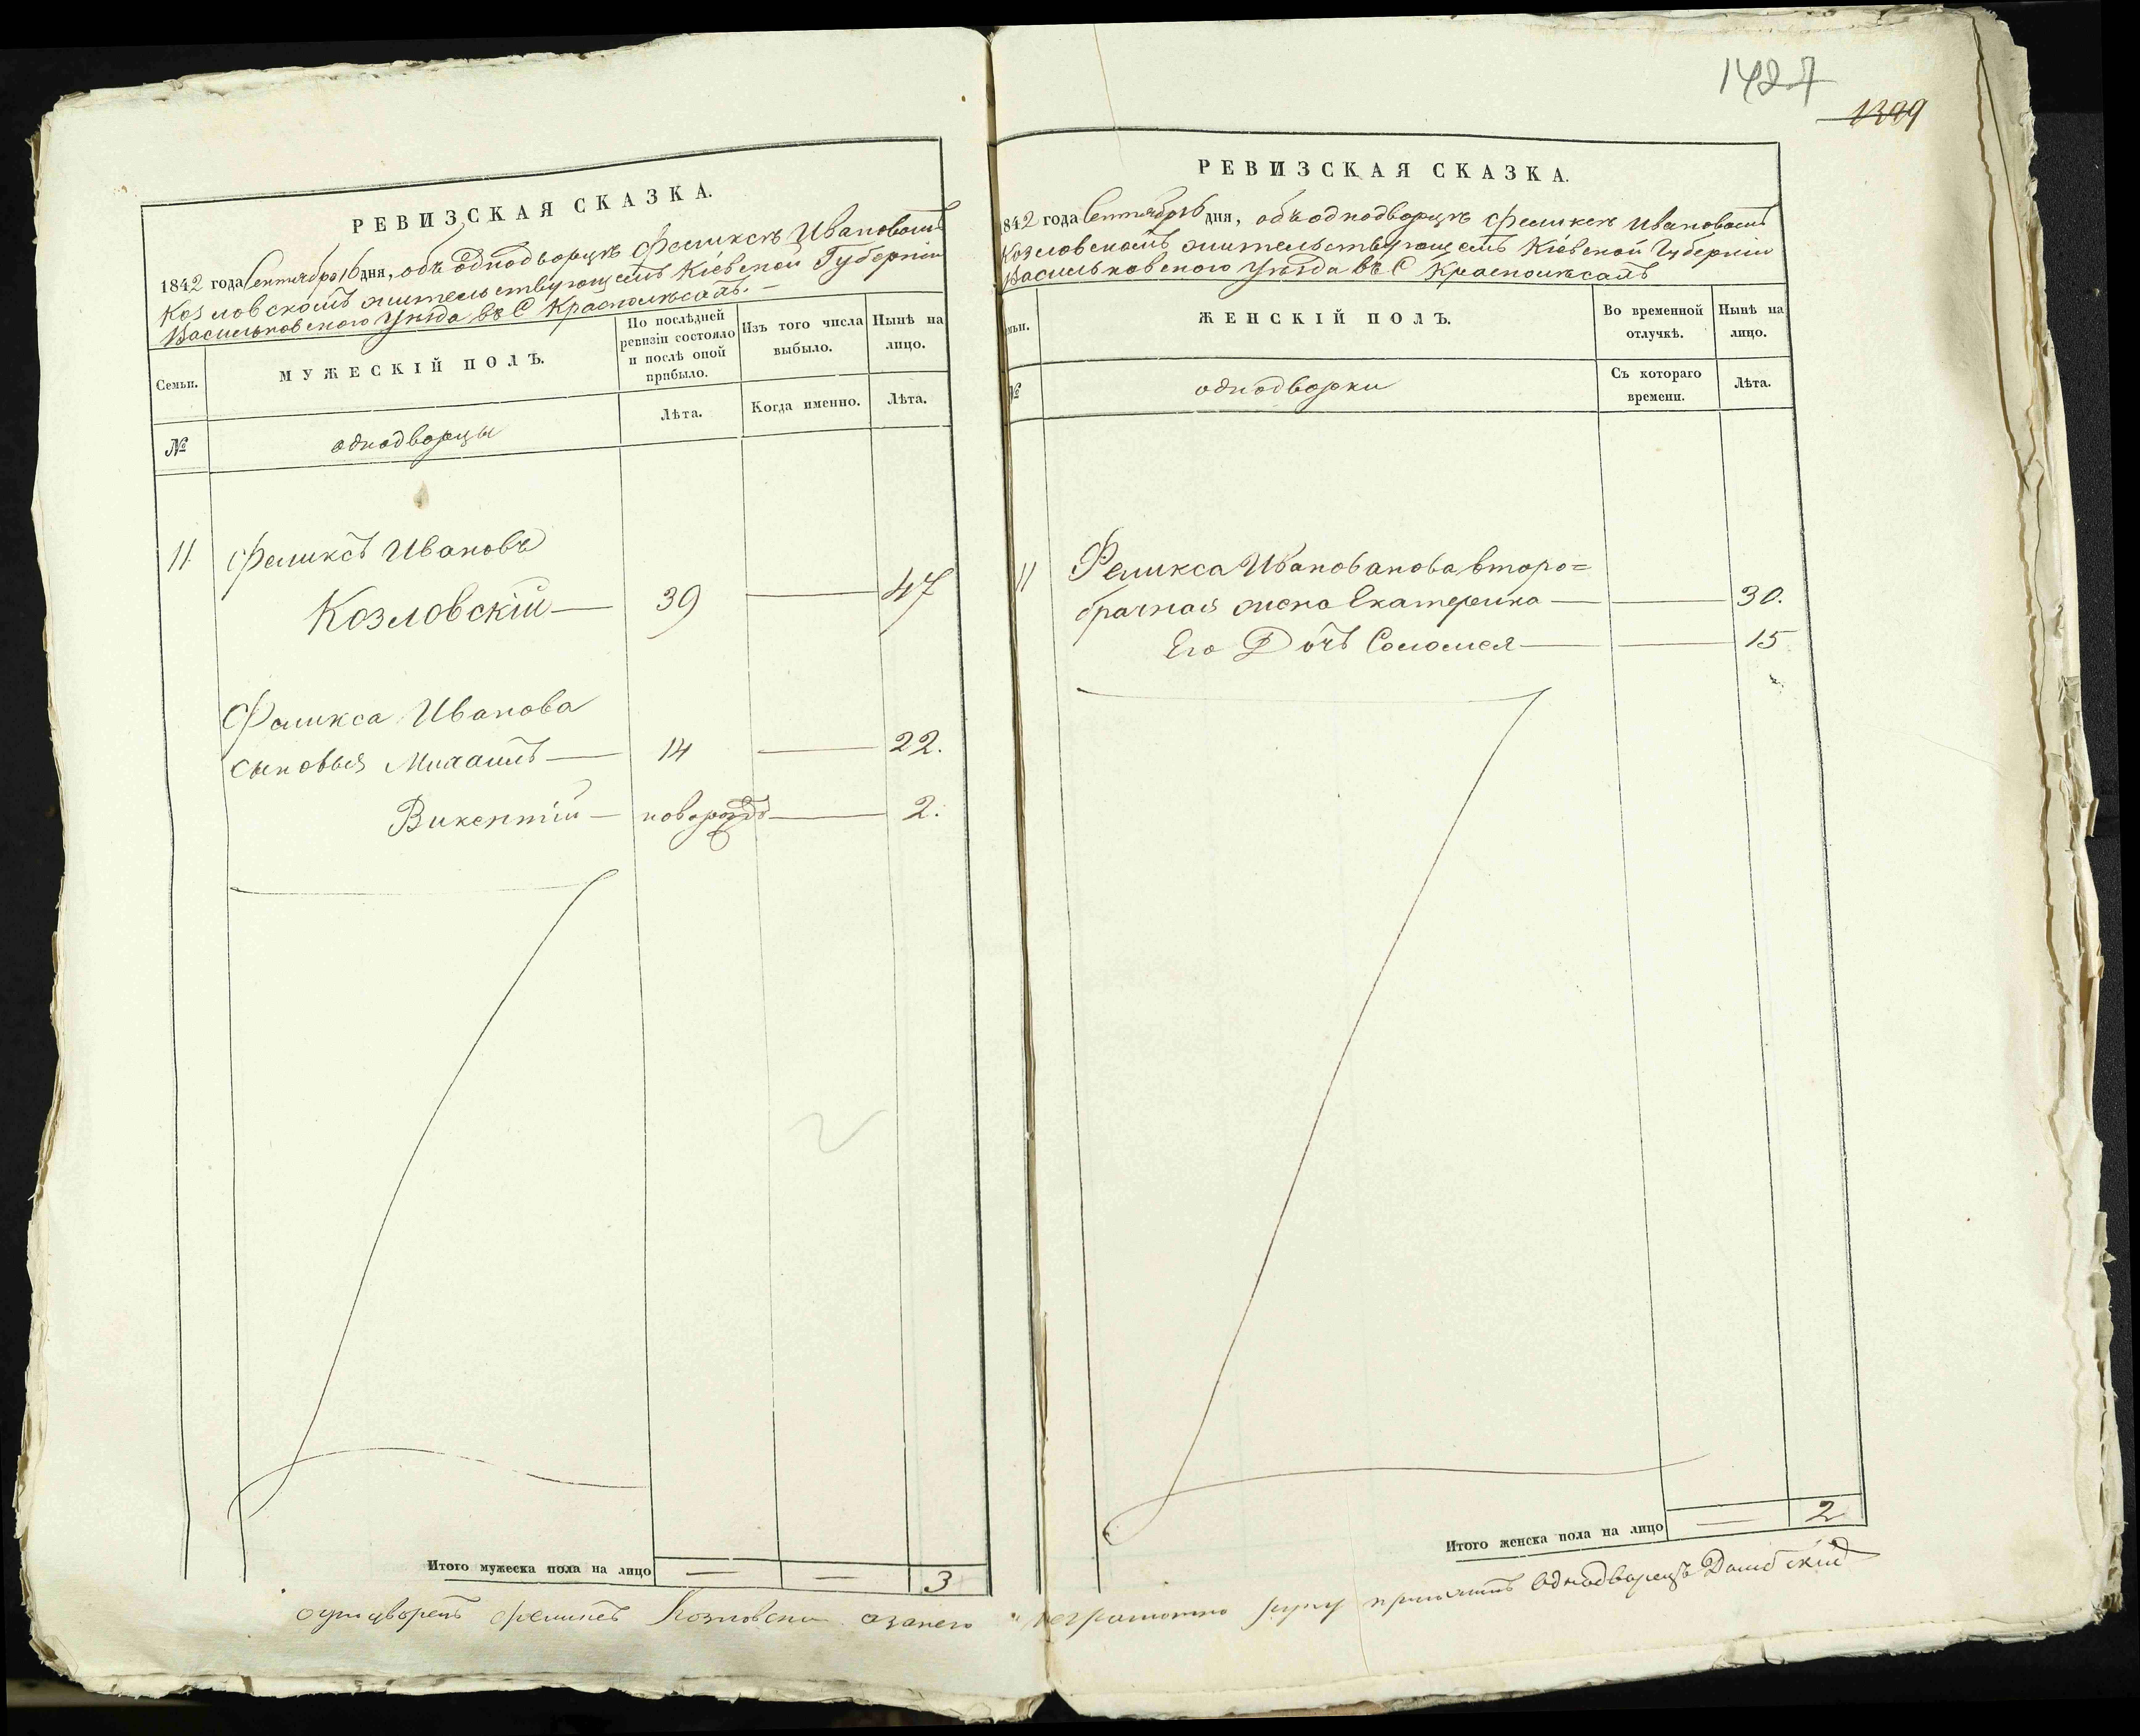 РЕВИЗСКАЯ СКАЗКА.
1842 года Сентября 16 дня, объ однодворцѣ Феликсѣ Ивановомъ
Козловскомъ жительствующемъ Кіевской Губерніи
Васильковского Уѣзда въ С Краснолѣсахъ. –
Семьи.
МУЖЕСКІЙ ПОЛЪ.
По послѣдней ревизіи состояло и послѣ оной прибыло.
Изъ того числа выбыло.
Нынѣ на лицо.
№
однодворцы
Лѣта.
Когда именно.
Лѣта.
11. Феликсъ Ивановъ
Козловскій — 39 — 47
Феликса Иванова
сыновья Михаилъ — 14 — 22.
Викентій — новорожд — 2.
Итого мужеска пола на лицо = = 3
однодворецъ Феликсъ Козловски азанего
1427
1399
РЕВИЗСКАЯ СКАЗКА.
1842 года Сентября 16 дня, объ однодворцѣ Феликсѣ Ивановомъ
Козловскомъ жительствующемъ Кіевской Губерніи
Васильковского Уѣзда въ С Краснолѣсахъ
мьи.
ЖЕНСКІЙ ПОЛЪ.
Во временной отлучкѣ.
Нынѣ на лицо.
№
однодворки
Съ котораго времени.
Лѣта.
11 Феликса Иванованова второ=
брачная жена Екатерина — — 30.
Его Дочъ Соломея — — 15
Итого женска пола на лицо = 2
неграмотно руку приложилъ Однодворецъ